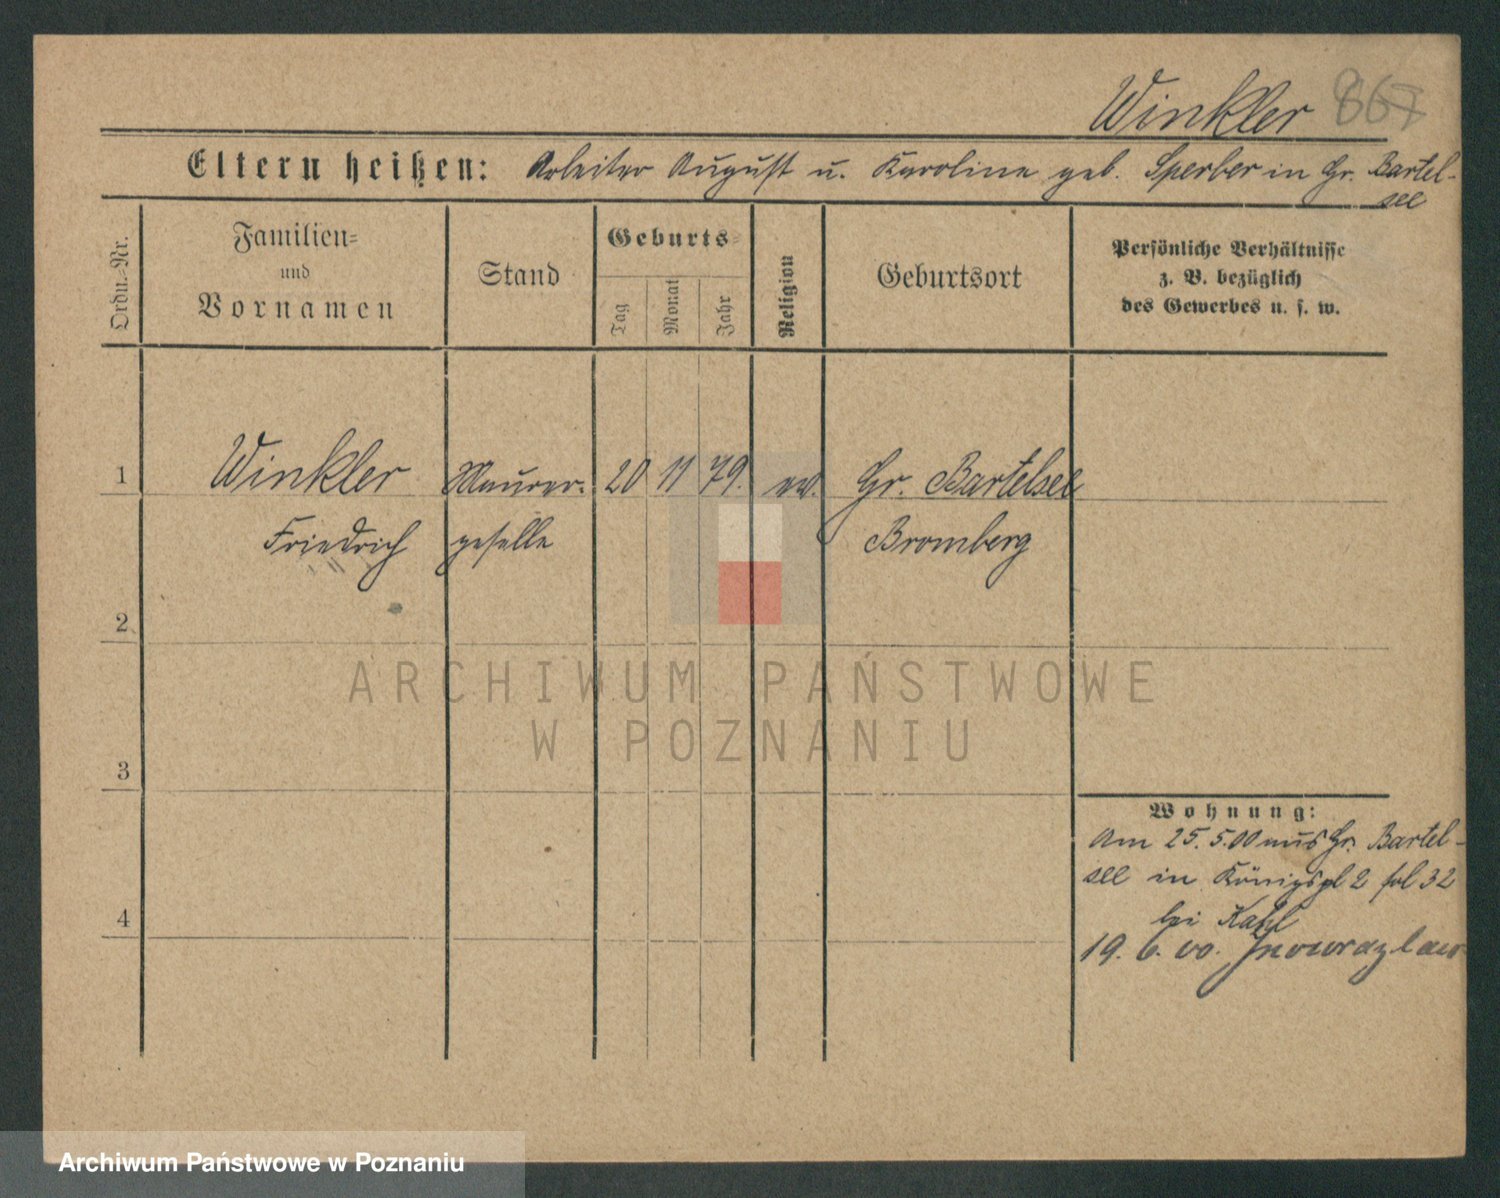 Winkler 867
Eltern heißen: Arbeiter August u. Karoline geb. Sperber in Gr. Bartel-
see
Ordn.-Nr.
Familien-
und
Vornamen
Stand
Geburts-
Tag
Monat
Jahr
Religion
Geburtsort
Persönliche Verhältnisse
z. B. bezüglich
des Gewerbes u. s. w.
1 Winkler Maurer- 20 11 79. ev. Gr. Bartelsee
Friedrich geselle Bromberg
2
ARCHIWUM PAŃSTWOWE
W POZNANIU
3
Wohnung:
Am 25.5.00 aus Gr. Bartel-
see in Königspl 2 fol 32
bei Kahl
4
19. 6. 00. Inowrazlaw
Archiwum Państwowe w Poznaniu